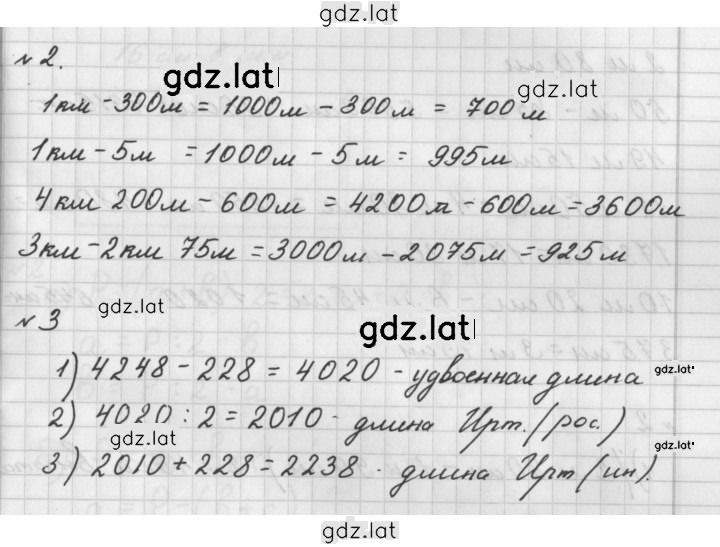 gdz.lat
№ 2.
gdz.lat
gdz.lat
1км - 300м = 1000м - 300м = 700м
1км - 5м = 1000м - 5м = 995м
4км 200м - 600м = 4200м - 600м = 3600м
3км - 2км 75м = 3000м - 2075м = 925м
gdz.lat
№ 3
gdz.lat
1) 4248 - 228 = 4020 - удвоенная длина
gdz.lat
2) 4020 : 2 = 2010 - длина Ирт. (рос.)
gdz.lat
gdz.lat
3) 2010 + 228 = 2238 - длина Ирт (ин).
gdz.lat